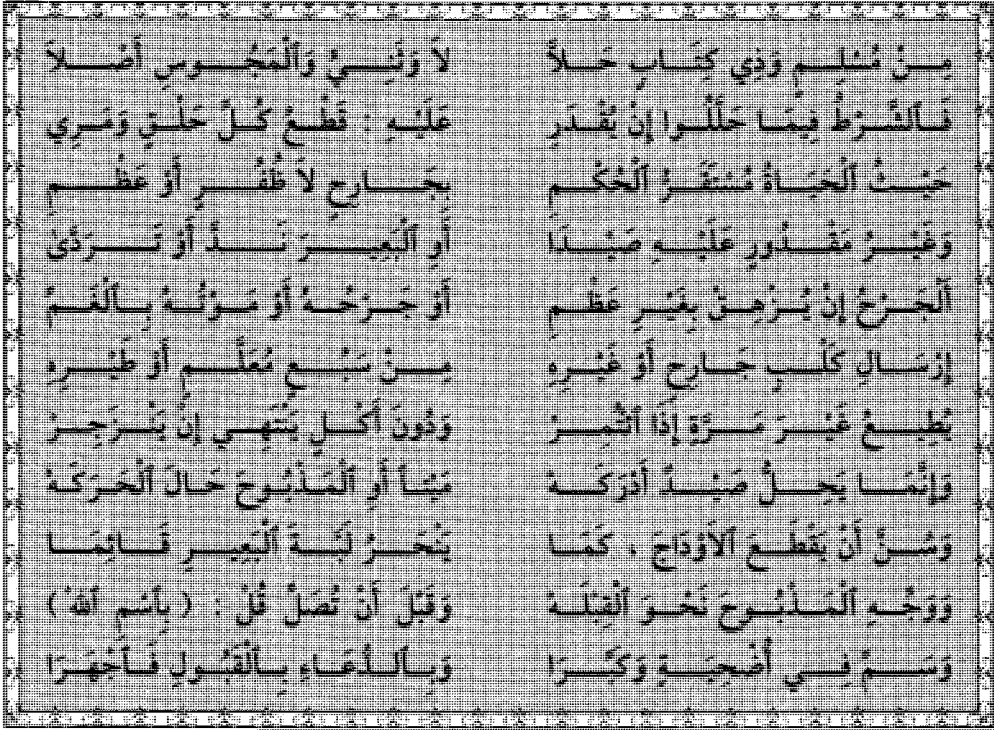 مِنْ مُسْلِمٍ وَذِي كِتَابٍ حَلاَّ لاَ وَثَنِيٍّ وَٱلْمَجُوسِ أَصْلاَ
فَٱلشَّرْطُ فِيمَا حَلَّلُوا إِنْ يُقْدَرِ عَلَيْهِ : قَطْعُ كُلِّ حَلْقٍ وَمَرِي
حَيْثُ ٱلْحَيَاةُ مُسْتَقَرُّ ٱلْحُكْمِ بِجَارِحٍ لاَ ظُفُرٍ أَوْ عَظْمِ
وَغَيْرُ مَقْدُورٍ عَلَيْهِ صَيْدَا أَوِ ٱلْبَعِيرَ نَدَّ أَوْ تَرَدَّىٰ
ٱلْجَرْحُ إِنْ يُزْهِقْ بِغَيْرِ عَظْمِ أَوْ جَرْحُهُ أَوْ مَوْتُهُ بِٱلْغَمِّ
إِرْسَالِ كَلْبٍ جَارِحٍ أَوْ غَيْرِهِ مِنْ سَبُعٍ مُعَلَّمٍ أَوْ طَيْرِهِ
يُطِيعُ غَيْرَ مَرَّةٍ إِذَا ٱئْتُمِرْ وَدُونَ أَكْلٍ يَنْتَهِي إِنْ يَنْزَجِرْ
وَإِنَّمَا يَحِلُّ صَيْدٌ أَدْرَكَهْ مَيْتاً أَوِ ٱلْمَذْبُوحَ حَالَ ٱلْحَرَكَهْ
وَسُنَّ أَنْ يَقْطَعَ ٱلأَوْدَاجَ ، كَمَا يَنْحَرُ لَبَّةَ ٱلْبَعِيرِ قَائِمَا
وَوَجِّهِ ٱلْمَذْبُوحَ نَحْوَ ٱلْقِبْلَهْ وَقَبْلَ أَنْ تُصَلِّ قُلْ : ( بِٱسْمِ ٱللهْ )
وَسَمِّ فِي أُضْحِيَةٍ وَكَبِّرَا وَبِٱلدُّعَاءِ بِٱلْقَبُولِ فَٱجْهَرَا